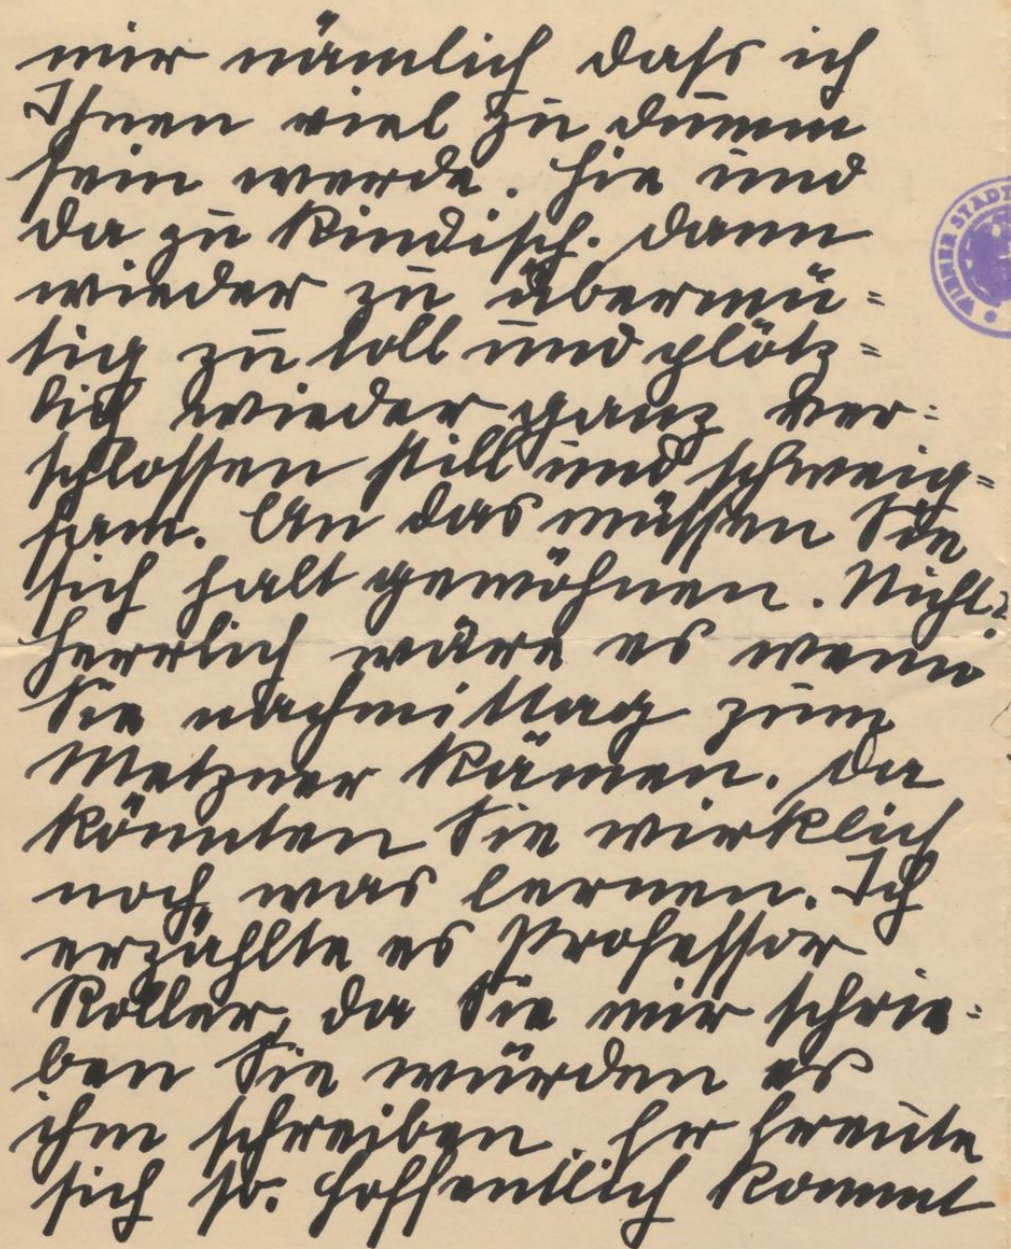 mir nämlich dass ich
Ihnen viel zu dumm
sein werde. Hie und
da zu kindisch. dann
wieder zu übermü=
tig zu toll und plötz=
lich wieder ganz ver=
schlossen still und schweig=
sam. An das müssen Sie
sich halt gewöhnen. Nicht?
Herrlich wäre es wenn
Sie nachmittag zum
Metzner kämen. Da
könnten Sie wirklich
noch was lernen. Ich
erzählte es Professor
Roller, da Sie mir schrie=
ben Sie würden es
ihm schreiben. Er freute
sich so. Hoffentlich kommt
WIENER STADT